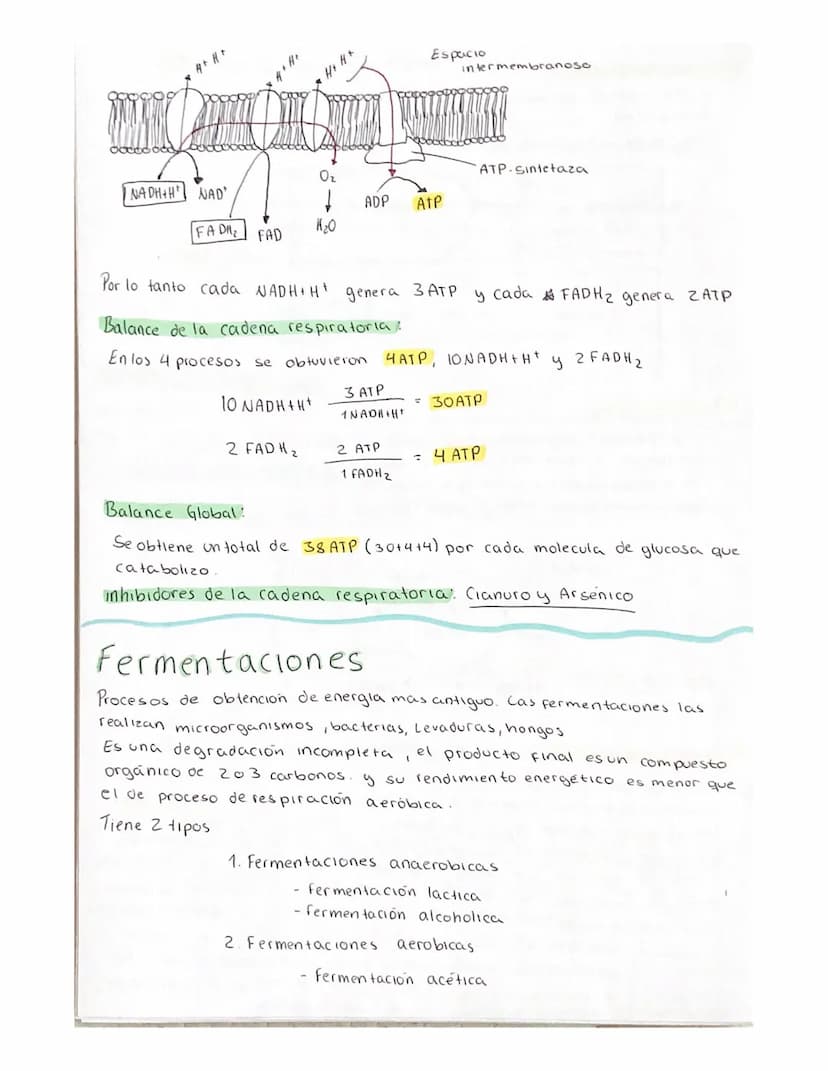 H⁺ H⁺
H⁺ H⁺
H⁺ H⁺
Espacio
intermembranoso
ATP-sintetaza
NADH+H⁺
NAD⁺
FADH₂
FAD
O₂
H₂O
ADP
ATP
Por lo tanto cada NADH+H⁺ genera 3 ATP y cada FADH₂ genera 2 ATP
Balance de la cadena respiratoria:
En los 4 procesos se obtuvieron 4 ATP, 10 NADH+H⁺ y 2 FADH₂
10 NADH+H⁺ 3 ATP / 1 NADH+H⁺ = 30 ATP
2 FADH₂ 2 ATP / 1 FADH₂ = 4 ATP
Balance Global:
Se obtiene un total de 38 ATP (30+4+4) por cada molecula de glucosa que
catabolizo.
inhibidores de la cadena respiratoria: Cianuro y Arsénico
Fermentaciones
Procesos de obtencion de energia mas antiguo. Las fermentaciones las
realizan microorganismos, bacterias, Levaduras, hongos
Es una degradación incompleta, el producto final es un compuesto
orgánico de 2 o 3 carbonos. y su rendimiento energético es menor que
el de proceso de respiración aeróbica.
Tiene 2 tipos
1. Fermentaciones anaerobicas
- fermentación lactica
- fermentación alcoholica
2. Fermentaciones aerobicas
- fermentación acética